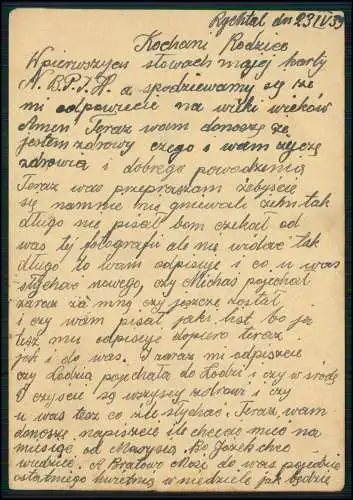 Rychtal dn 23 IV 39
Kochani Rodzice
W pierwszych słowach mojej karty
N.B.P.J.H. a spodziewamy się że
mi odpowiecie na wilki wieków
Amen. Teraz wam donoszę że
jestem zdrowy czego i wam życzę
zdrowia i dobrego powodzenia
Teraz was przepraszam żebyście
się na mnie nie gniewali żem tak
długo nie pisał bom czekał od
was tej fotografii ale nie widać tak
długo to wam odpisuje i co u was
słychać nowego, czy Michaś pojechał
zaraz za mną czy jeszcze został
i czy wam pisał jaki list bo ja
tesz mu odpisuje dopiero teraz
jak i do was. I zaraz mi odpiszcie
czy Ładzia pojechała do Łodzi i czy w środę
i czyście są wszyscy zdrowi i czy
u was tesz co źle słychać. Teraz wam
donoszę napiszcie ile chcecie mieć na
miesiąc od Marysia, Bo Józek chce
wiedzieć. A Bratowo Może do was pojedzie
ostatniego kwietnia w niedziele jak będzie